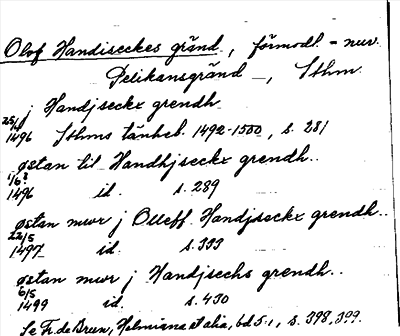 Olof Handiseckes gränd, förmodl. = nuv.
Pelikansgränd, Sthm.
j Handjseckx grendh
25/4
1496 Sthms tänkeb. 1492-1500, s. 281
østan til Handhjseckx grendh..
1496 id. s. 289
østan mwr j Olleff Handjseckx grendh..
22/5
1497 id. s. 333
østan mwr j Handjsechs grendh..
6/5
1499 id. s. 430
Se Fr. de Brun, Holmiana et alia, bd 5:1, s. 398, 399.